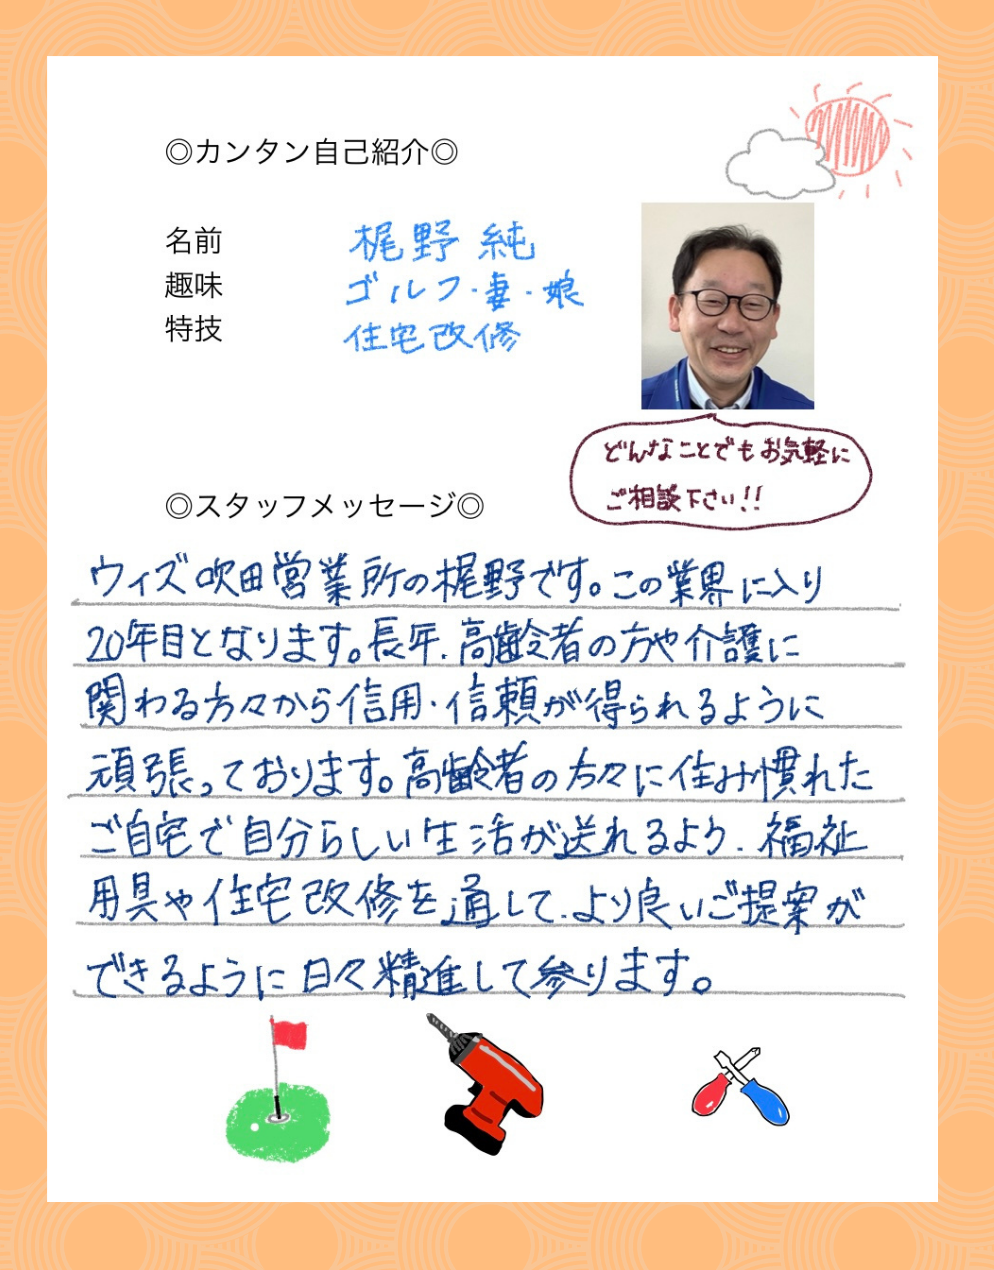 ◎カンタン自己紹介◎
名前 梶野 純
趣味 ゴルフ・妻・娘
特技 住宅改修
どんなことでもお気軽に
ご相談下さい!!
◎スタッフメッセージ◎
ウィズ吹田営業所の梶野です。この業界に入り
20年目となります。長年、高齢者の方や介護に
関わる方々から信用・信頼が得られるように
頑張っております。高齢者の方々に住み慣れた
ご自宅で自分らしい生活が送れるよう、福祉
用具や住宅改修を通して、より良いご提案が
できるように日々精進して参ります。